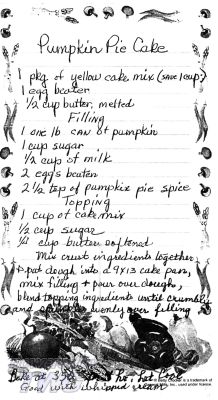 Pumpkin Pie Cake
1 pkg of yellow cake mix (save 1 cup)
1 egg beater
1/2 cup butter, melted
Filling
1 one lb can of pumpkin
1 cup sugar
1/2 cup of milk
2 eggs beaten
2 1/2 tsp of pumpkin pie spice
Topping
1 cup of cake mix
1/2 cup sugar
1/4 cup butter softened
Mix crust ingredients together
& pat dough into a 9x13 cake pan,
mix filling & pour over dough,
blend topping ingredients until crumbly
and sprinkle evenly over filling
is a trademark of
Inc. used under license
Bake at
Good with whipped cream